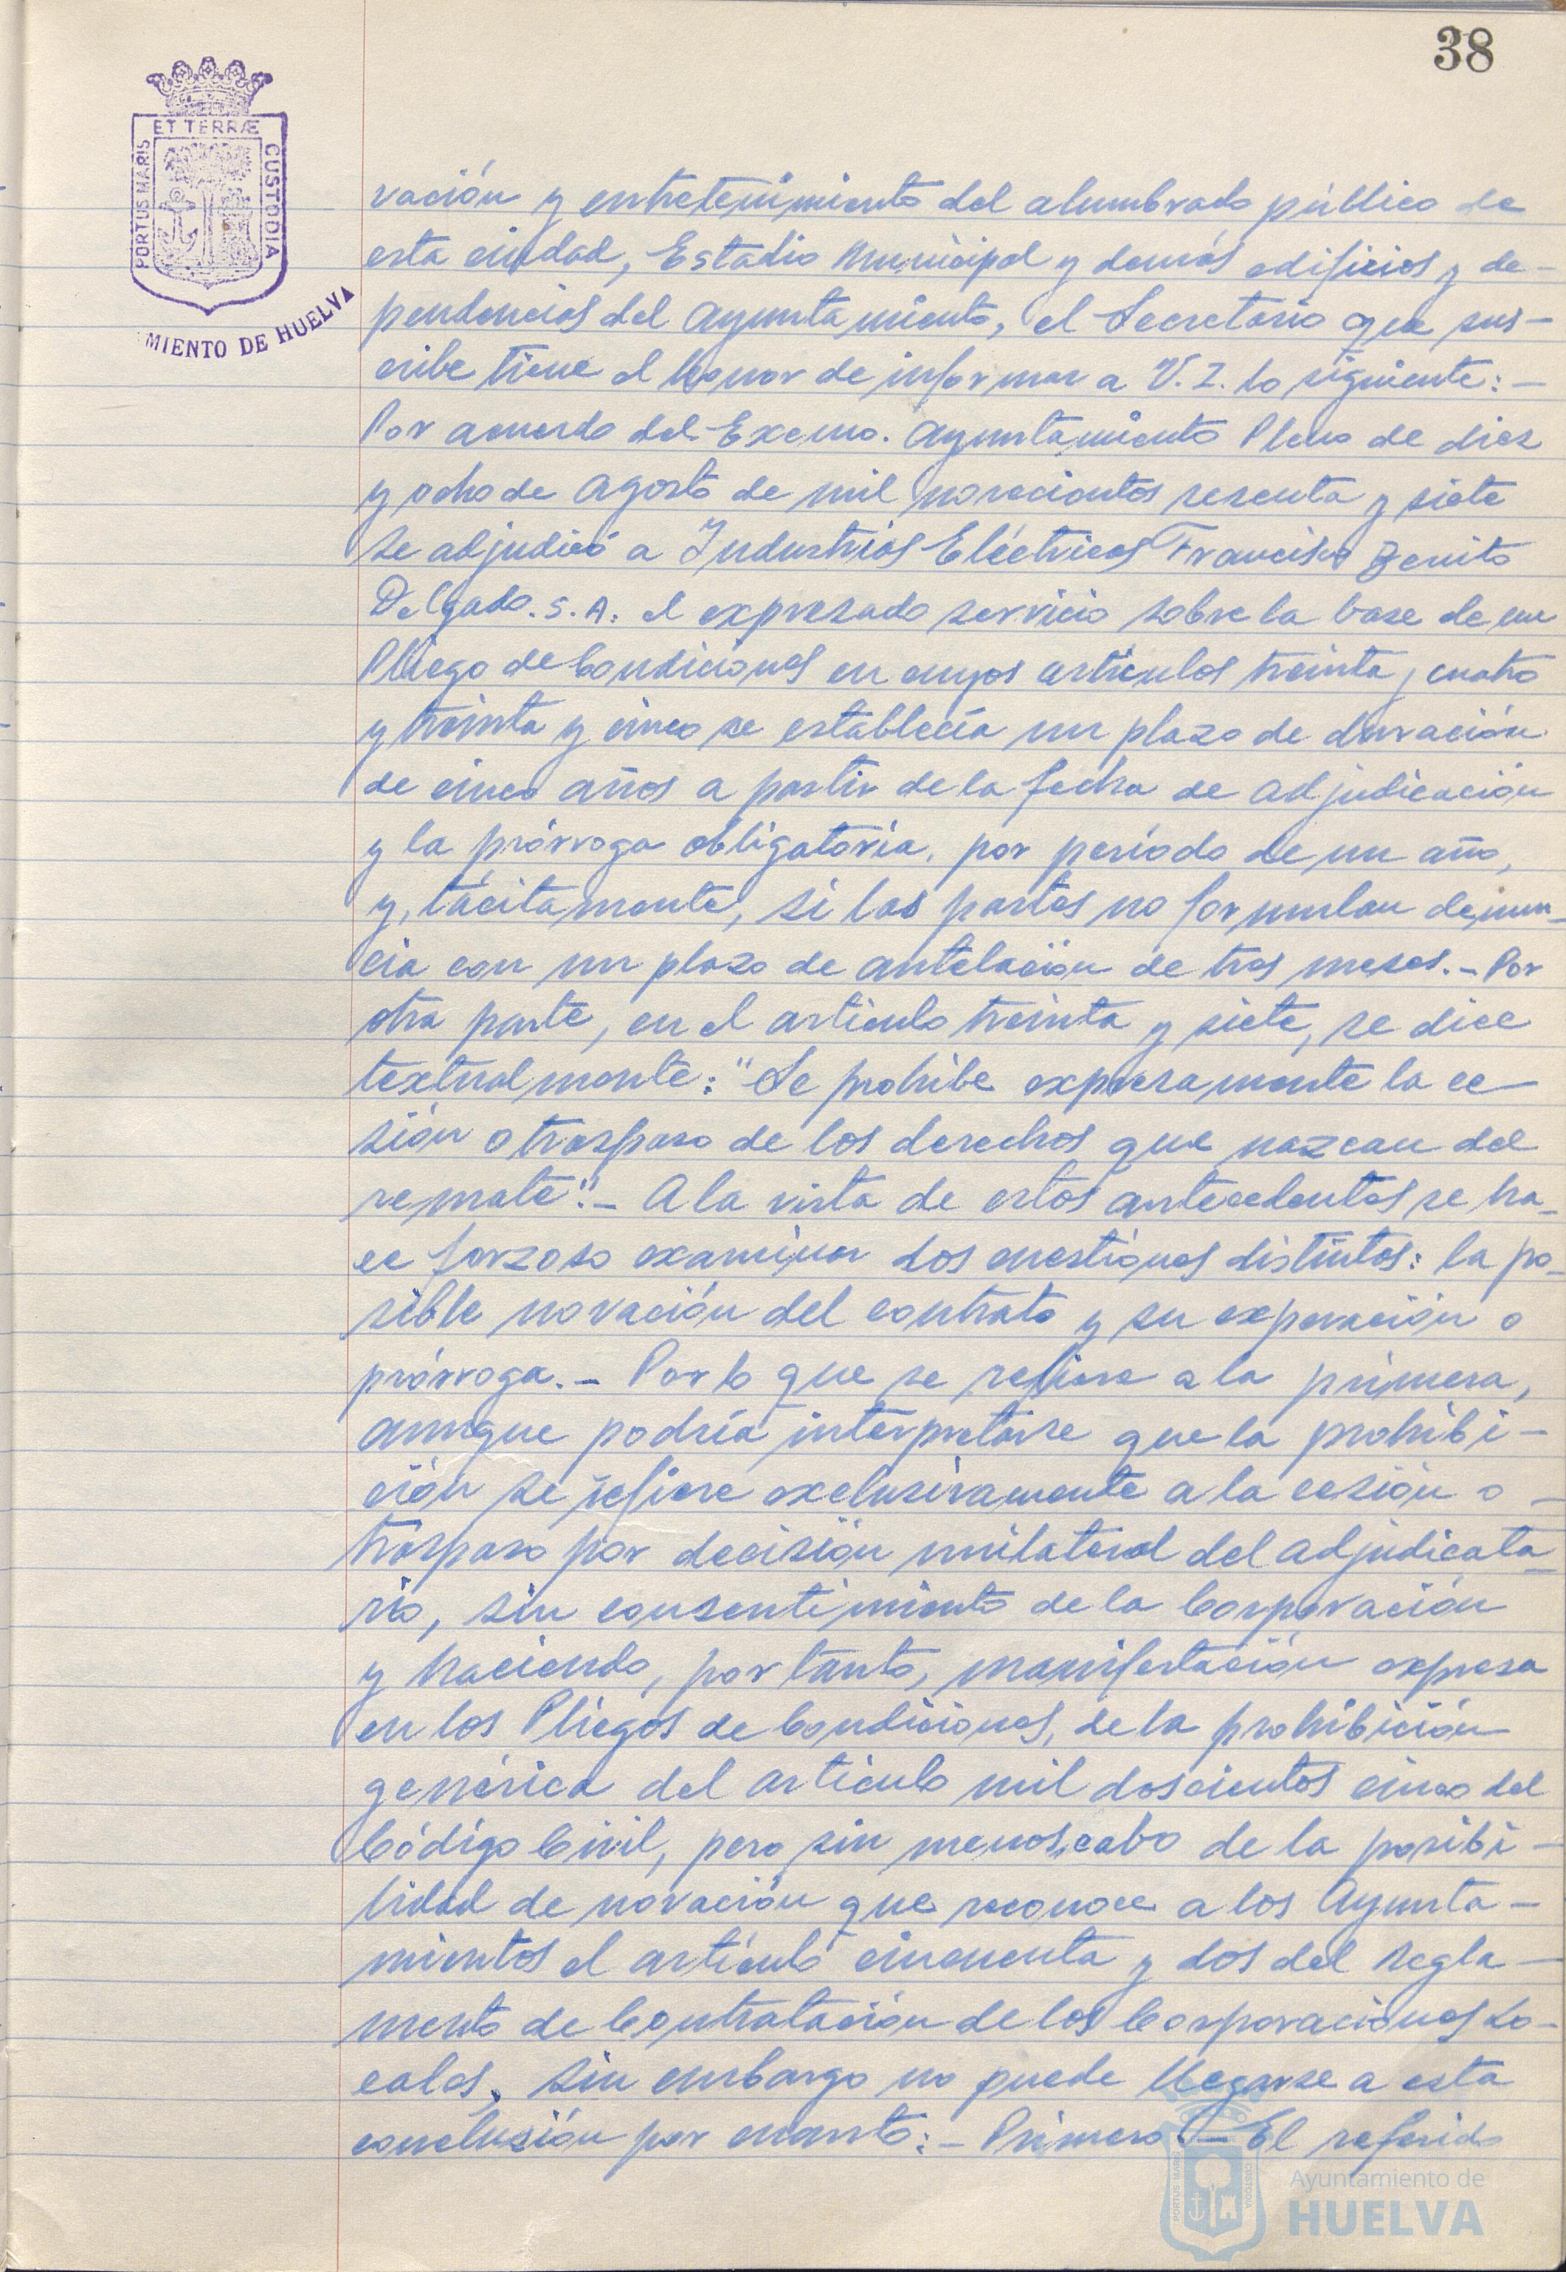 38
ET TERRÆ
PORTUS MARIS
CUSTODIA
MIENTO DE HUELVA
vación y entretenimiento del alumbrado público de
esta ciudad, Estadio Municipal y demás edificios y de-
pendencias del Ayuntamiento, el Secretario que sus-
cribe tiene el honor de informar a V. I. lo siguiente: -
Por acuerdo del Excmo. Ayuntamiento Pleno de diez
y ocho de agosto de mil novecientos sesenta y siete
se adjudicó a Industrias Eléctricas Francisco Benito
Delgado. S. A. el expresado servicio sobre la base de un
Pliego de Condiciones en cuyos artículos treinta y cuatro
y treinta y cinco se establecía un plazo de duración
de cinco años a partir de la fecha de adjudicación
y la prórroga obligatoria, por período de un año,
y, tácitamente, si las partes no formulan denun-
cia con un plazo de antelación de tres meses. - Por
otra parte, en el artículo treinta y siete, se dice
textualmente: "Se prohibe expresamente la ce-
sión o traspaso de los derechos que nazcan del
remate". - A la vista de estos antecedentes se ha-
ce forzoso examinar dos cuestiones distintas: la po-
sible novación del contrato y su expiración o
prórroga. - Por lo que se refiere a la primera,
aunque podría interpretarse que la prohibi-
ción se refiere exclusivamente a la cesión o -
traspaso por decisión unilateral del adjudicata-
rio, sin consentimiento de la Corporación
y haciendo, por tanto, manifestación expresa
en los Pliegos de Condiciones, de la prohibición
genérica del artículo mil doscientos cinco del
Código Civil, pero sin menoscabo de la posibi-
lidad de novación que reconoce a los Ayunta-
mientos el artículo cincuenta y dos del Regla-
mento de Contratación de las Corporaciones Lo-
cales, sin embargo no puede llegarse a esta
conclusión por cuanto: - Primero. - El referido
Ayuntamiento de
HUELVA